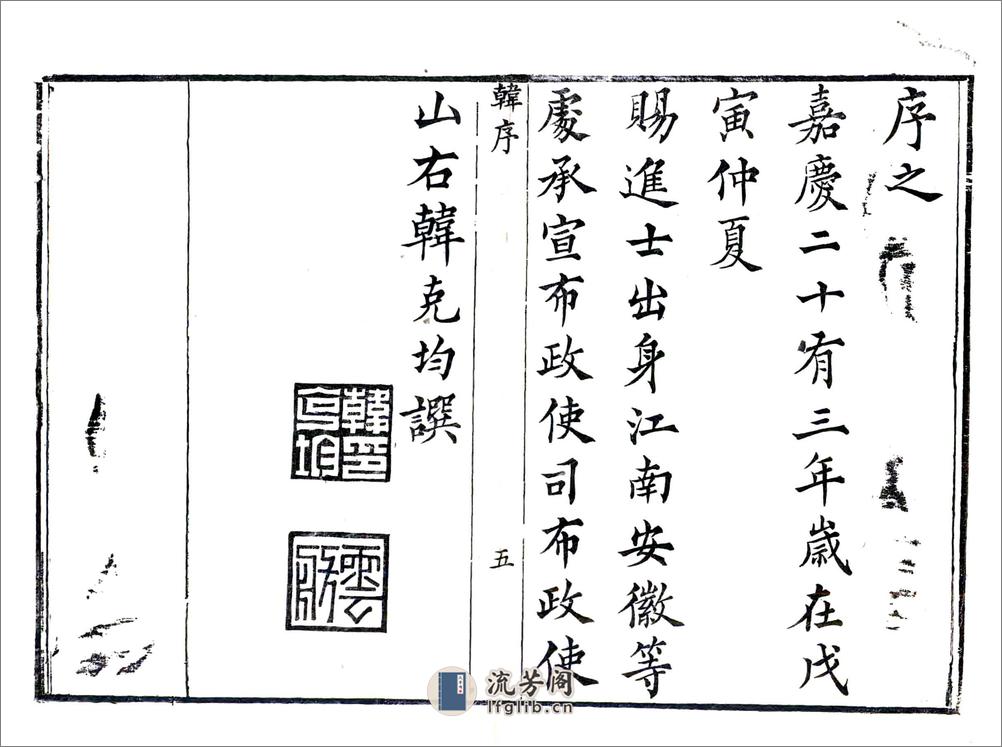 序之
嘉慶二十有三年歲在戊
寅仲夏
賜進士出身江南安徽等
處承宣布政使司布政使
韓序
五
山右韓克均撰
韓克均印
流芳阁
lfglib.cn